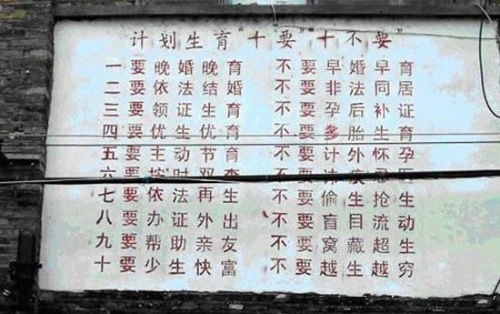 计划生育“十要”“十不要”
一要晚婚晚育 不要早婚早育
二要依法结婚 不要非法同居
三要领证生育 不要孕后补证
四要优生优育 不要多胎生育
五要主动节育 不要计外怀孕
六要按时双查 不要讳疾忌医
七要依法再生 不要偷生抢生
八要办证外出 不要盲目流动
九要帮助亲友 不要窝藏超生
十要少生快富 不要越生越穷